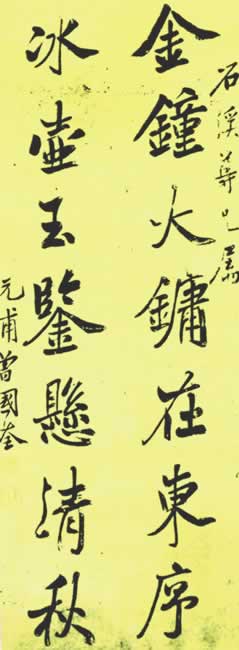 石溪尊兄屬
金鐘火鏞在東序
冰壺玉鑒懸清秋
元甫曾國荃